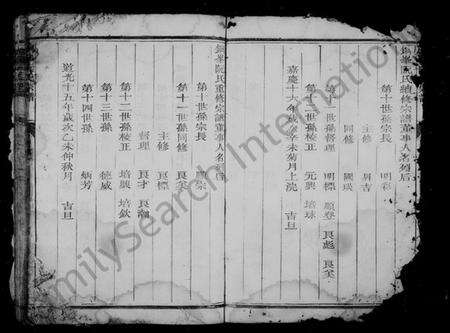 鏡峯阮氏總修宗譜董事人名列后
第十世孫宗長 明彩
主修 昌吉
同修 國瑛
第十一世孫督理 明標 順登 良彪 良筭
第十二世孫校正 元興 培球
嘉慶十六年歲次辛未菊月上浣 吉旦
阮氏重修宗譜董事人名
第十世孫宗長
第十一世孫同修 良筭
主修 良標
督理 良才 良瀚
第十二世孫校正 培興 培欽
第十三世孫 德威
第十四世孫 炳芳
道光十五年歲次乙未仲秋月 吉旦
FamilySearch International